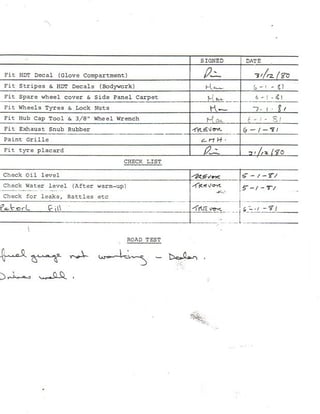 SIGNED DATE
Fit HDT Decal (Glove Compartment) 31/12/80
Fit Stripes & HDT Decals (Bodywork) 5-1-81
Fit Spare wheel cover & Side Panel Carpet 6-1-81
Fit Wheels Tyres & Lock Nuts 7-1-81
Fit Hub Cap Tool & 3/8" Wheel Wrench 81
Fit Exhaust Snub Rubber TREVOR 6-1-81
Paint Grille
Fit tyre placard 31/12/80
CHECK LIST
Check Oil level TREVOR 5-1-81
Check Water level (After warm-up) TREVOR 5-1-81
Check for leaks, Rattles etc
Fill TREVOR 81
ROAD TEST
fuel guage not working - Dealer.
Drives well.